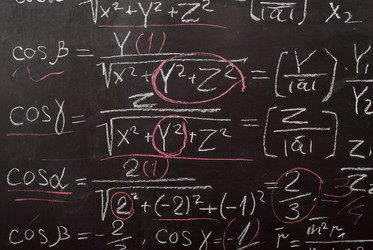 √x²+Y²+Z² (|ā|) X₂
cos β = Y (1) / √x²+Y²+Z² = (Y / |ā|) Y₁ / Y₂
cos γ = Z / √x²+Y²+Z² = [Z / |ā|]
cos α = 2 (1) / √2²+(-2)²+(-1)² = 2 / 3
cos β = -2/3, cos γ = (1